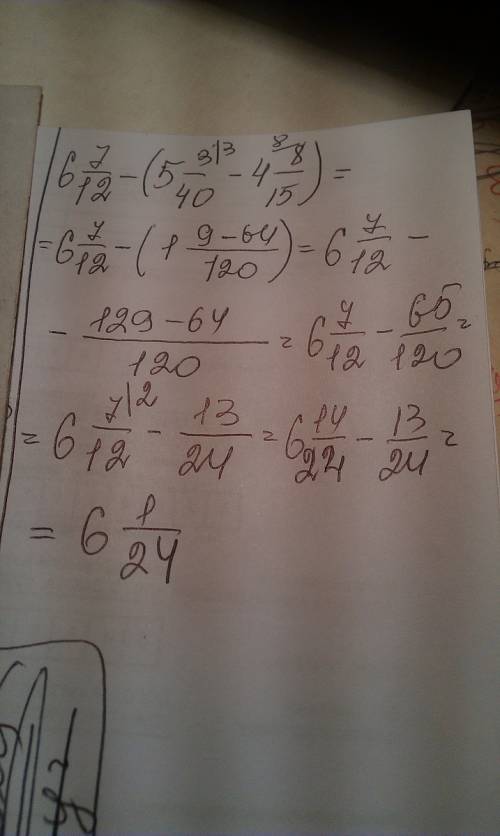 6 7/12 - (5 3/40 |3 - 4 8/15 |8) =
= 6 7/12 - (1 (9-64)/120) = 6 7/12 -
- (129-64)/120 = 6 7/12 - 65/120 =
= 6 7/12 |2 - 13/24 = 6 14/24 - 13/24 =
= 6 1/24